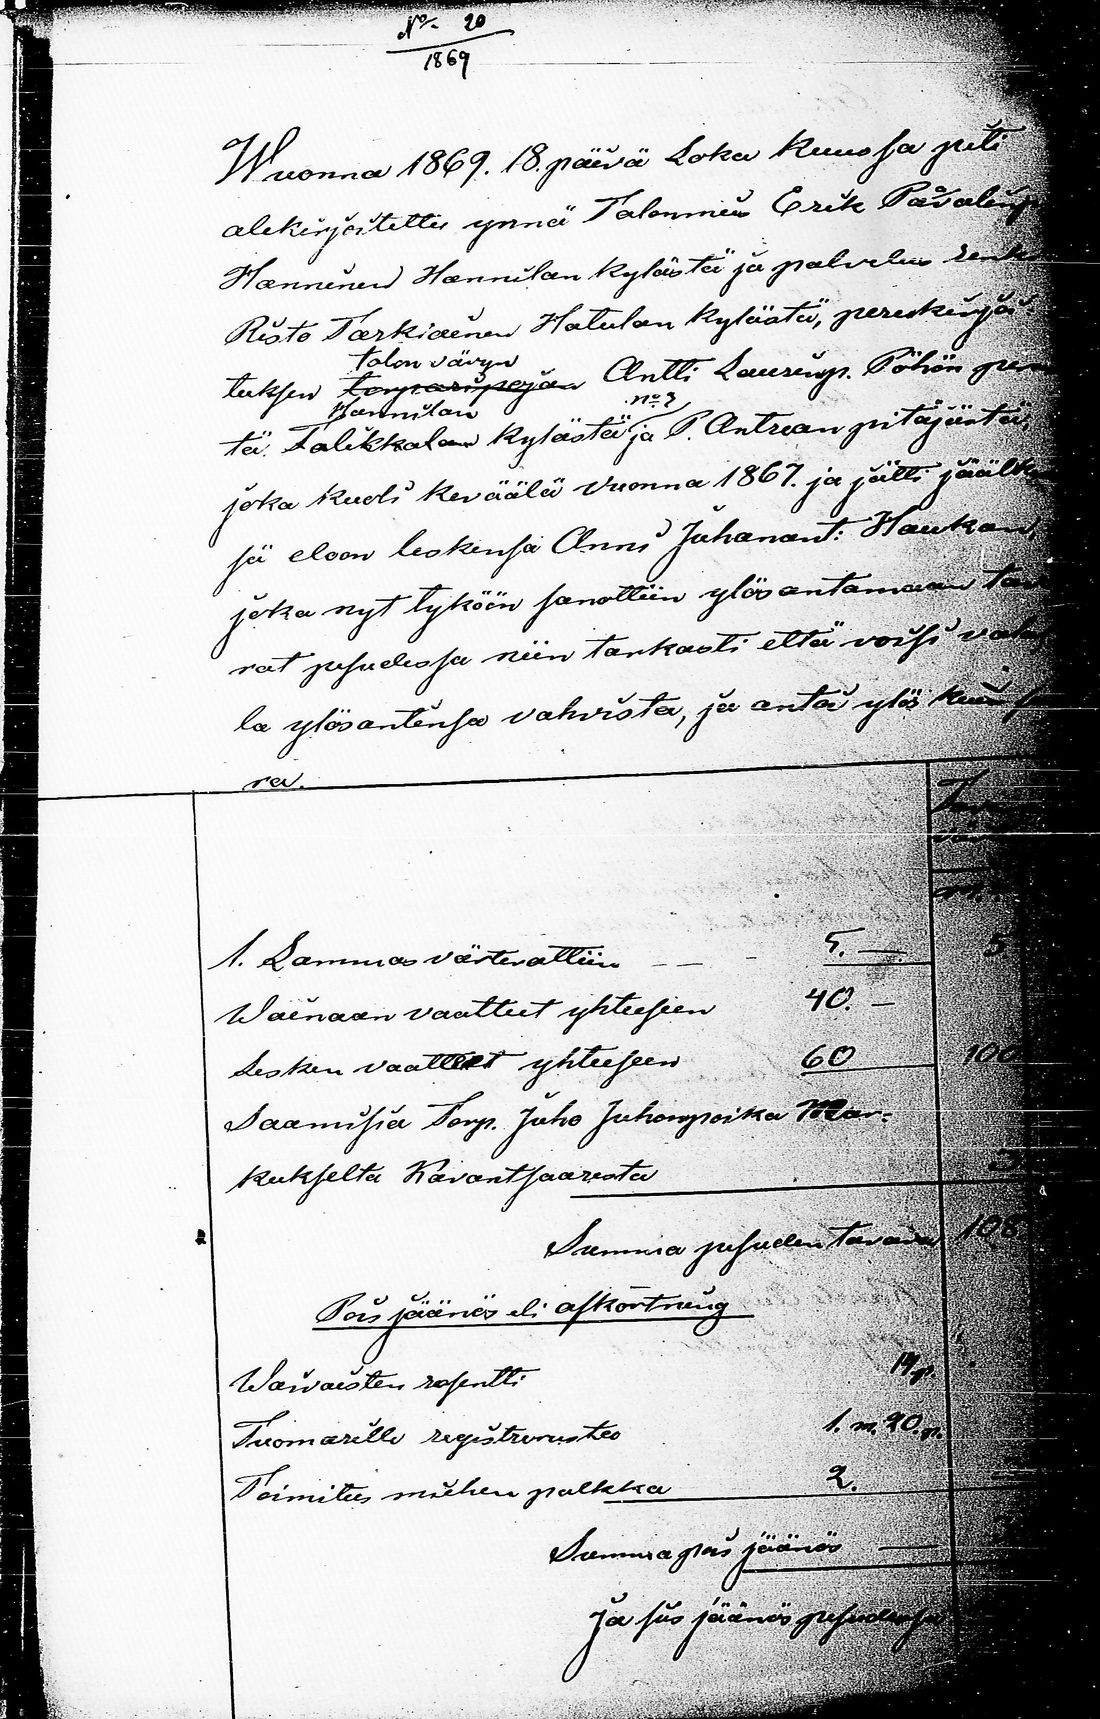 No 20
1869
Wuonna 1869. 18. päivä Loka kuussa piti
alekirjoitettu ynnä Talonmies Erik Påvalinp
Hanninen Hannilan kylästä ja palvelus renk
Risto Tarkiainen Hatulan kylästä, pereskirjoi
talon vävyn
tuksen torparipojan Antti Laurinp. Pöhön pese
Hannilan no 3
tä. Talikkalan kylästä ja P. Antrean pitäjästä,
joka kuoli keväälä vuonna 1867. ja jätti jäälk
sä eloon leskensä Anni Juhanant: Haukan,
joka nyt tyköön sanottiin ylösantamaan tava
rat pesudessa niin tarkasti että voissi vala
la ylösantensa vahvista, ja antoi ylös kuin
ra.
1. Lammas värterattiin — — 5. — 5
Wainaan vaatteet yhteeseen 40. —
Lesken vaatteet yhteeseen 60 100
Saamisia Torp. Juho Juhonpoika Mar-
kukselta Kavantsaaresta 3
Summa pesuden tavara 108
Pois jäänös eli afkortning
Waivaisten rosentti 14 p.
Tuomarille registrerusteo 1. m. 20. p.
Toimitus miehen palkka 2.
Summa pois jäänös —
Ja siis jäänös pesudessa